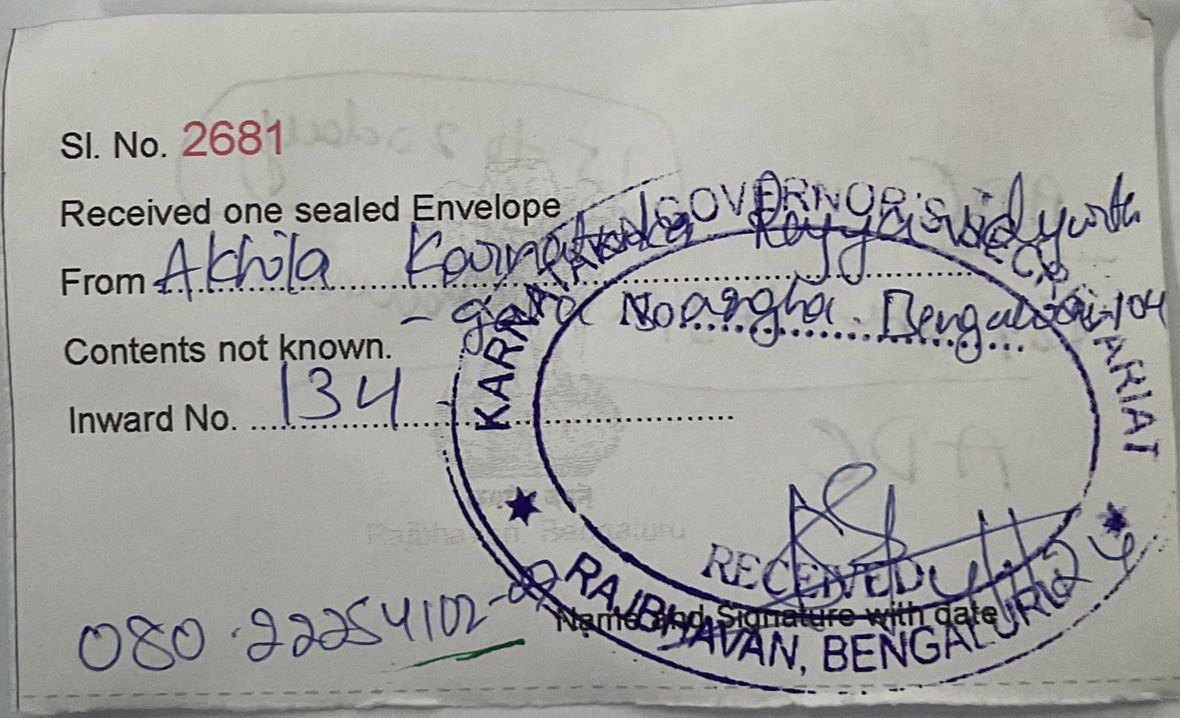 Sl. No. 2681
Received one sealed Envelope
From Akhila Karnataka Rajya
Contents not known. Bengaluru-104
Inward No. 134
KARNATAKA GOVERNOR'S SECRETARIAT
RECEIVED
Name and Signature with date
RAJBHAVAN, BENGALURU
080-22254102